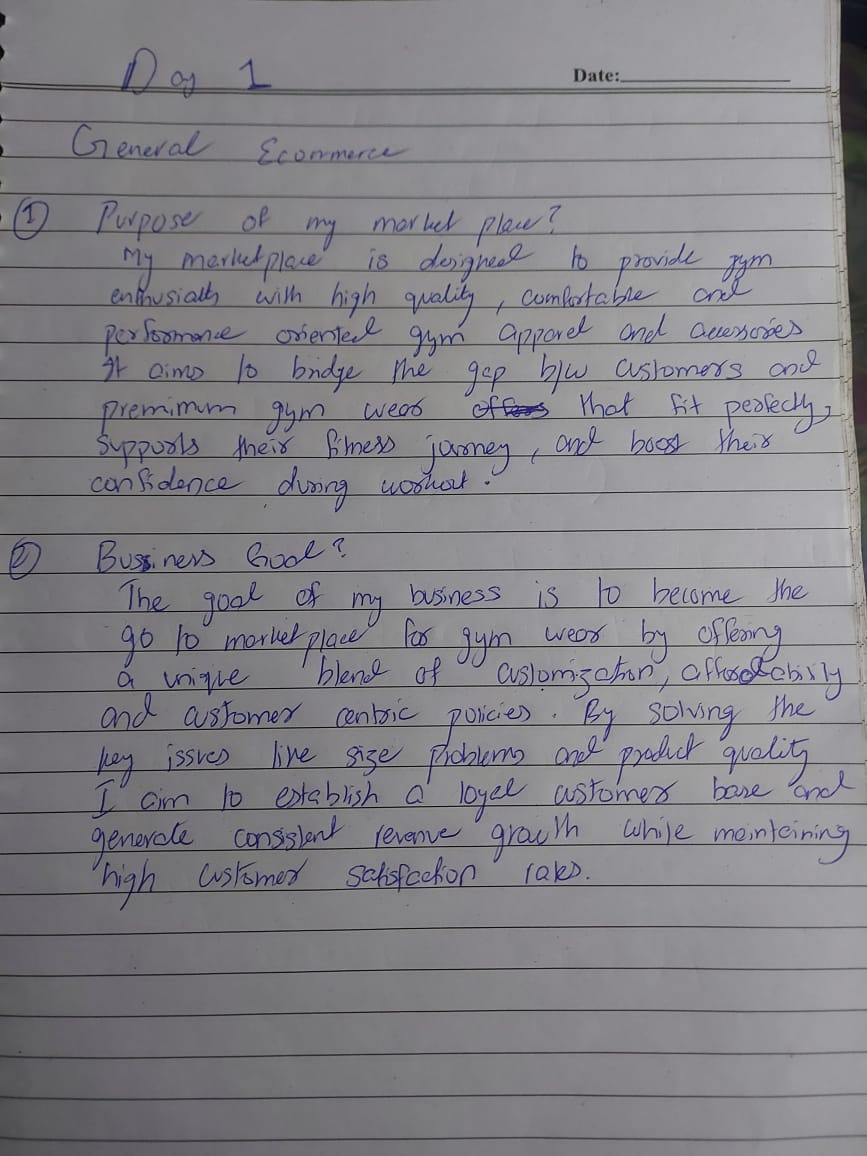 Day 1
Date:
General Ecommerce
① Purpose of my market place?
My marketplace is designed to provide gym
enthusiasts with high quality, comfortable and
performance oriented gym apparel and accessories
It aims to bridge the gap b/w customers and
premimum gym wear that fit perfectly,
supports their fitness journey, and boost their
confidence during workout.
② Bussiness Goal?
The goal of my business is to become the
go to marketplace for gym wear by offering
a unique blend of customization, affordability
and customer centric policies. By solving the
key issues like size problems and product quality
I aim to establish a loyal customer base and
generate consistent revenue growth while maintaining
high customer satisfaction rates.